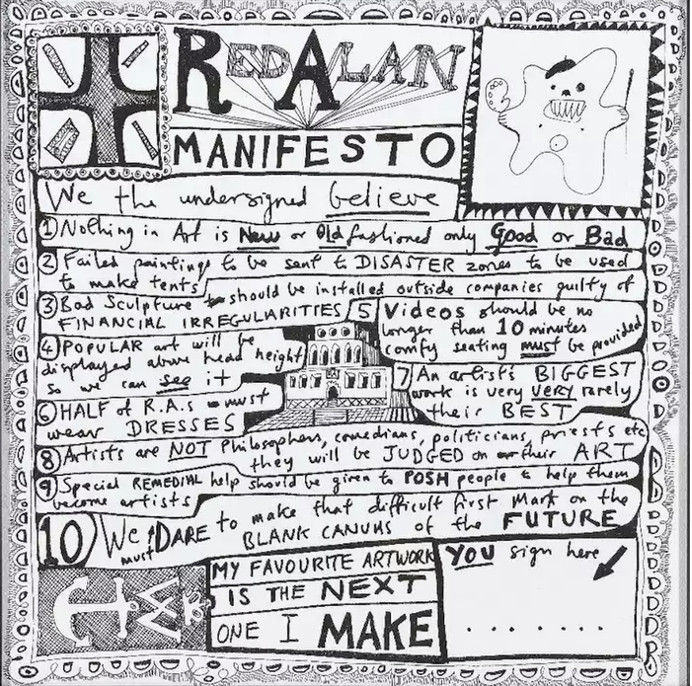 RED ALAN
MANIFESTO
We the undersigned believe
① Nothing in Art is New or Old fashioned only Good or Bad
② Failed paintings to be sent to DISASTER zones to be used
to make tents
③ Bad Sculpture should be installed outside companies guilty of
FINANCIAL IRREGULARITIES
④ POPULAR art will be
displayed above head height
so we can see it
5 Videos should be no
longer than 10 minutes
comfy seating must be provided
⑥ HALF of R.A.s must
wear DRESSES
7 An artist's BIGGEST
work is very VERY rarely
their BEST
⑧ Artists are NOT Philosophers, comedians, politicians, priests etc
they will be JUDGED on their ART
⑨ Special REMEDIAL help should be given to POSH people to help them
become artists
10 We must DARE to make that difficult first Mark on the
BLANK CANVAS of the FUTURE
MY FAVOURITE ARTWORK
IS THE NEXT
ONE I MAKE
YOU sign here